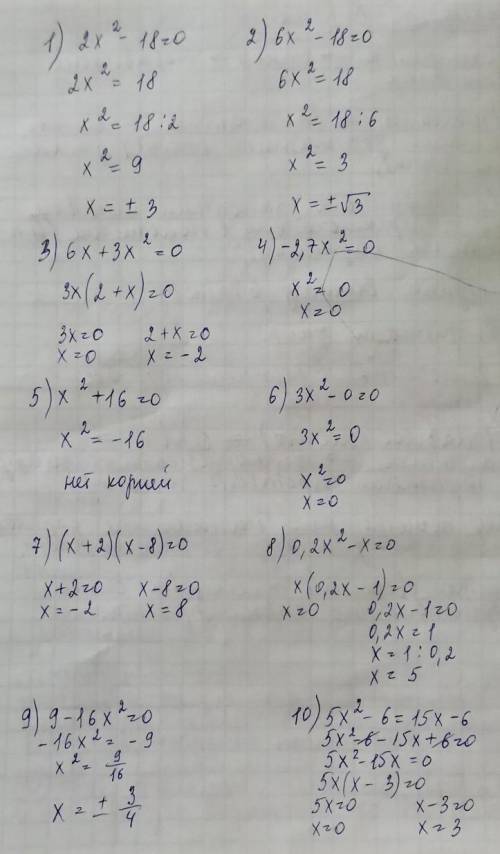 1) 2x² - 18=0
2x² = 18
x² = 18:2
x² = 9
x = ± 3
2) 6x² - 18=0
6x² = 18
x² = 18:6
x² = 3
x = ±√3
3) 6x + 3x² = 0
3x(2 + x) = 0
3x=0 2+x=0
x=0 x = -2
4) -2,7x² = 0
x² = 0
x = 0
5) x² + 16 = 0
x² = -16
нет корней
6) 3x² - 0 = 0
3x² = 0
x² = 0
x = 0
7) (x+2)(x-8)=0
x+2=0 x-8=0
x=-2 x=8
8) 0,2x² - x = 0
x(0,2x - 1)=0
x=0 0,2x-1=0
0,2x=1
x = 1:0,2
x = 5
9) 9 - 16x² = 0
-16x² = -9
x² = 9/16
x = ± 3/4
10) 5x² - 6 = 15x - 6
5x² - 6 - 15x + 6 = 0
5x² - 15x = 0
5x(x - 3)=0
5x=0 x-3=0
x=0 x=3